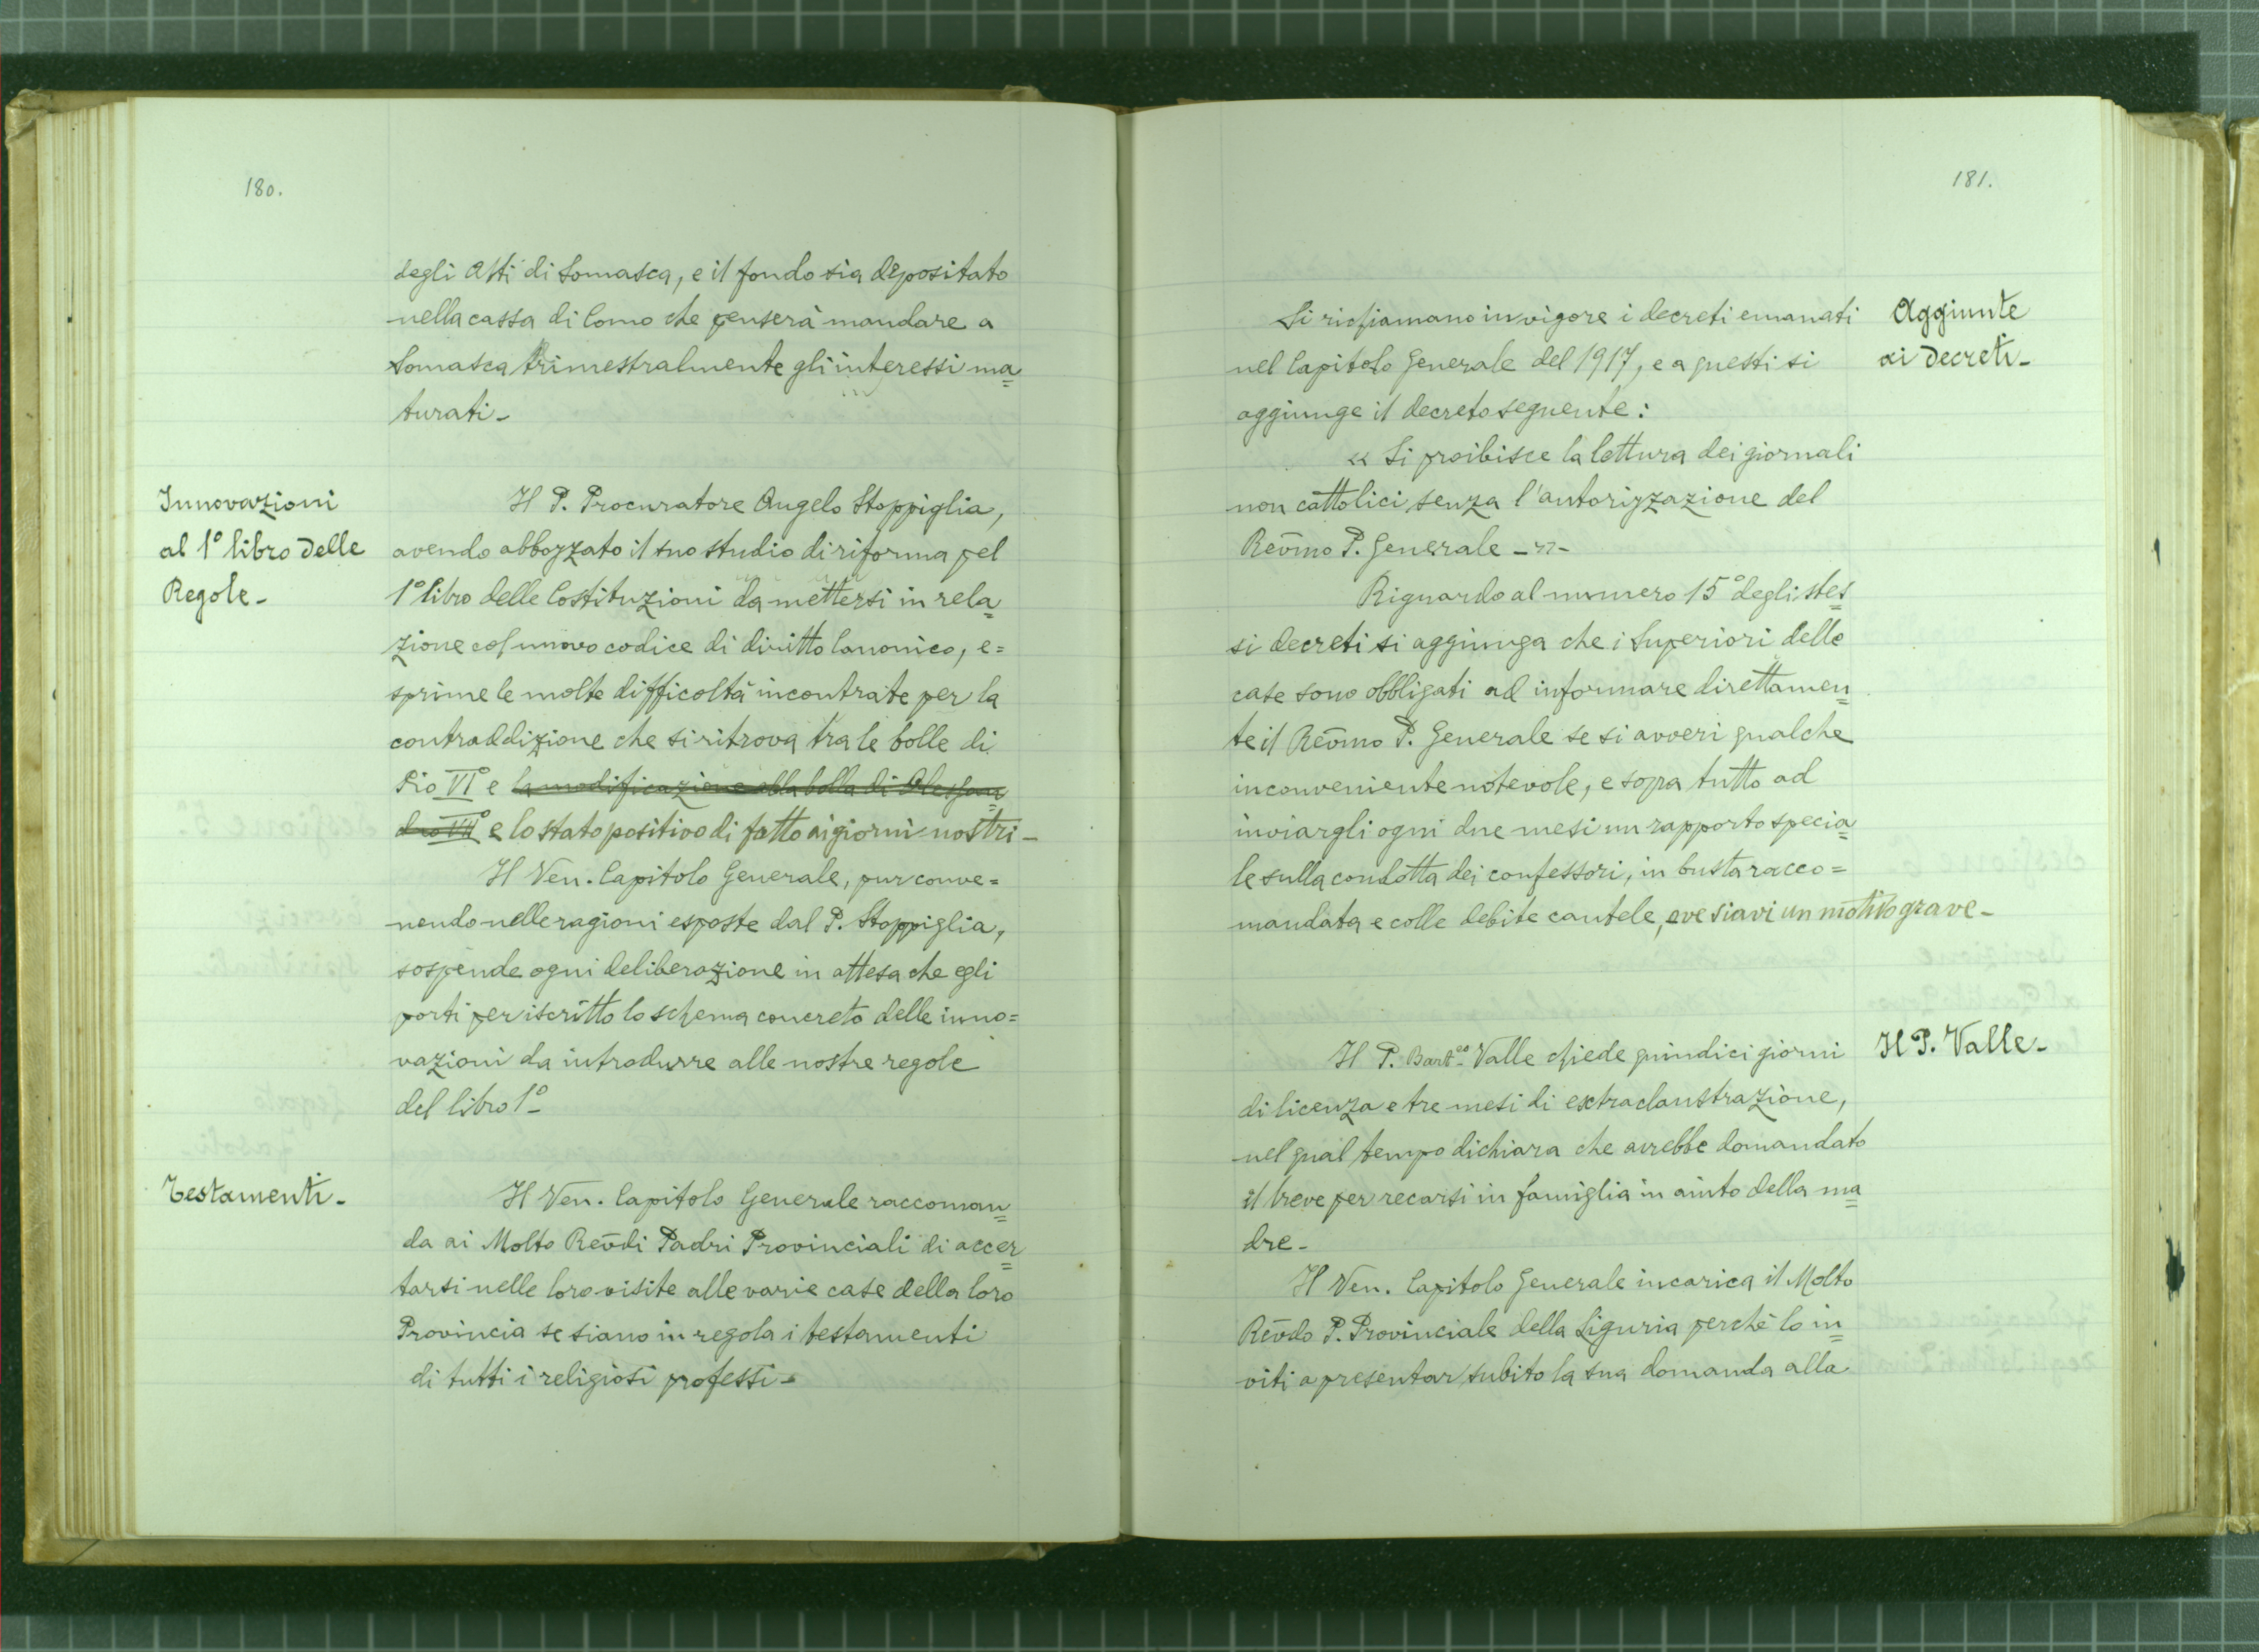 180.
degli Atti di Somasca, e il fondo sia depositato
nella cassa di Como che penserà mandare a
Somasca trimestralmente gli interessi ma=
turati -
Innovazioni
al 1° libro delle
Regole -
Il P. Procuratore Angelo Stoppiglia,
avendo abbozzato il suo studio di riforma pel
1° libro delle Costituzioni da mettersi in rela=
zione col nuovo codice di diritto Canonico, e=
sprime le molte difficoltà incontrate per la
contraddizione che si ritrova tra le bolle di
Pio VI° e la modificazione alla bolla di Alessan=
dro VII° e lo stato positivo di fatto ai giorni nostri -
Il Ven. Capitolo Generale, pur conve=
nendo nelle ragioni esposte dal P. Stoppiglia,
sospende ogni deliberazione in attesa che egli
porti per iscritto lo schema concreto delle inno=
vazioni da introdurre alle nostre regole
del libro 1° -
Testamenti -
Il Ven. Capitolo Generale raccoman=
da ai Molto Rev̄di Padri Provinciali di accer=
tarsi nelle loro visite alle varie case della loro
Provincia se siano in regola i testamenti
di tutti i religiosi professi -
181.
Aggiunte
ai decreti -
Si richiamano in vigore i decreti emanati
nel Capitolo Generale del 1917, e a questi si
aggiunge il decreto seguente:
« Si proibisce la lettura dei giornali
non cattolici senza l'autorizzazione del
Rev̄mo P. Generale - » -
Riguardo al numero 15° degli stes=
si decreti si aggiunga che i Superiori delle
case sono obbligati ad informare direttamen=
te il Rev̄mo P. Generale se si avveri qualche
inconveniente notevole, e sopra tutto ad
inviargli ogni due mesi un rapporto specia=
le sulla condotta dei confessori, in busta racco=
mandata e colle debite cautele, ove siavi un motivo grave -
Il P. Valle -
Il P. Bart°° Valle chiede quindici giorni
di licenza e tre mesi di extraclaustrazione,
nel qual tempo dichiara che avrebbe domandato
il breve per recarsi in famiglia in aiuto della ma=
dre -
Il Ven. Capitolo Generale incarica il Molto
Rev̄do P. Provinciale della Liguria perchè lo in=
viti a presentar subito la sua domanda alla